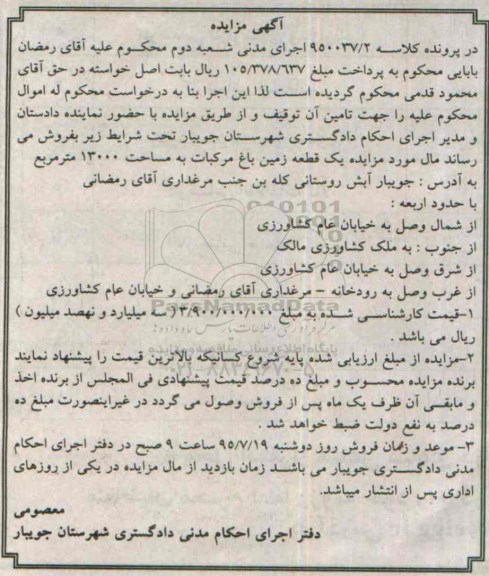 آگهی مزایده
در پرونده کلاسه ۹۵۰۰۳۷/۲ اجرای مدنی شعبه دوم محکوم علیه آقای رمضان
بابایی محکوم به پرداخت مبلغ ۱۰۵/۳۷۸/۶۳۷ ریال بابت اصل خواسته در حق آقای
محمود قدمی محکوم گردیده است لذا این اجرا بنا به درخواست محکوم له اموال
محکوم علیه را جهت تامین آن توقیف و از طریق مزایده با حضور نماینده دادستان
و مدیر اجرای احکام دادگستری شهرستان جویبار تحت شرایط زیر بفروش می
رساند مال مورد مزایده یک قطعه زمین باغ مرکبات به مساحت ۱۳۰۰۰ مترمربع
به آدرس : جویبار آبش روستانی کله بن جنب مرغداری آقای رمضانی
با حدود اربعه :
از شمال وصل به خیابان عام کشاورزی
از جنوب : به ملک کشاورزی مالک
از شرق وصل به خیابان عام کشاورزی
از غرب وصل به رودخانه – مرغداری آقای رمضانی و خیابان عام کشاورزی
۱-قیمت کارشناسی شده به مبلغ ۳/۹۰۰/۰۰۰/۰۰۰ ( سه میلیارد و نهصد میلیون )
ریال می باشد .
۲-مزایده از مبلغ ارزیابی شده پایه شروع کسانیکه بالاترین قیمت را پیشنهاد نمایند
برنده مزایده محسوب و مبلغ ده درصد قیمت پیشنهادی فی المجلس از برنده اخذ
و مابقی آن ظرف یک ماه پس از فروش وصول می گردد در غیراینصورت مبلغ ده
درصد به نفع دولت ضبط خواهد شد .
۳- موعد و زمان فروش روز دوشنبه ۹۵/۷/۱۹ ساعت ۹ صبح در دفتر اجرای احکام
مدنی دادگستری جویبار می باشد زمان بازدید از مال مزایده در یکی از روزهای
اداری پس از انتشار میباشد.
معصومی
دفتر اجرای احکام مدنی دادگستری شهرستان جویبار
ParsNamadData